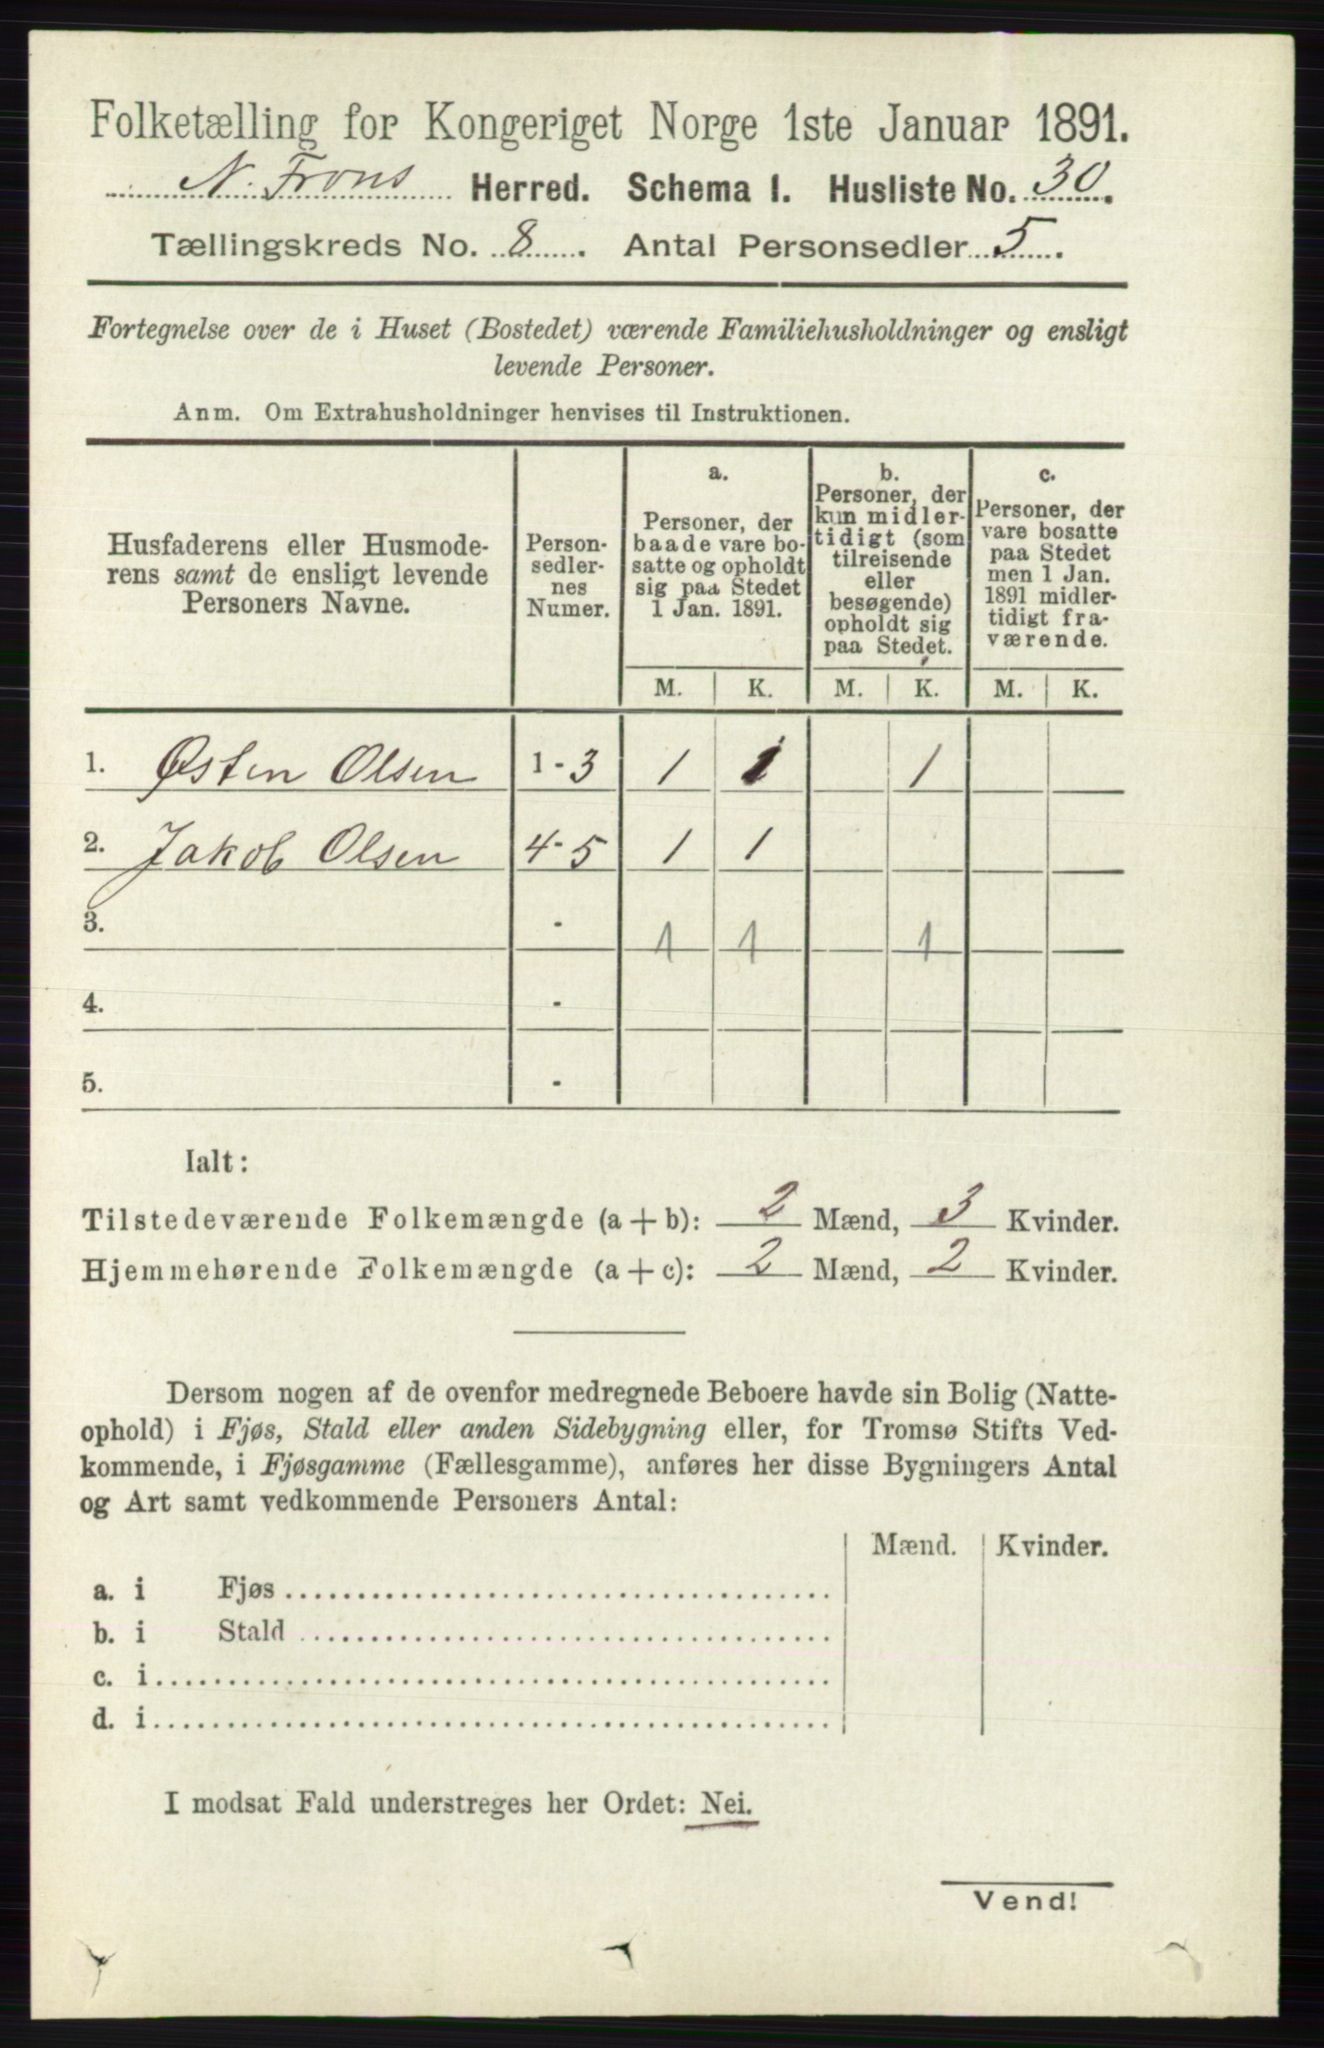 Folketælling for Kongeriget Norge 1ste Januar 1891.
N. Frons Herred. Schema I. Husliste No. 30.
Tællingskreds No. 8. Antal Personsedler 5.
Fortegnelse over de i Huset (Bostedet) værende Familiehusholdninger og ensligt
levende Personer.
Anm. Om Extrahusholdninger henvises til Instruktionen.
Husfaderens eller Husmode-
rens samt de ensligt levende
Personers Navne.
Person-
sedler-
nes
Numer.
a.
Personer, der
baade vare bo-
satte og opholdt
sig paa Stedet
1 Jan. 1891.
b.
Personer, der
kun midler-
tidigt (som
tilreisende
eller
besøgende)
opholdt sig
paa Stedet.
c.
Personer, der
vare bosatte
paa Stedet
men 1 Jan.
1891 midler-
tidigt fra-
værende.
M. K. M. K. M. K.
1. Østen Olsen 1-3 1 1 1
2. Jakob Olsen 4-5 1 1
3. - 1 1 1
4. -
5. -
Ialt:
Tilstedeværende Folkemængde (a+b): 2 Mænd, 3 Kvinder.
Hjemmehørende Folkemængde (a+c): 2 Mænd, 2 Kvinder.
Dersom nogen af de ovenfor medregnede Beboere havde sin Bolig (Natte-
ophold) i Fjøs, Stald eller anden Sidebygning eller, for Tromsø Stifts Ved-
kommende, i Fjøsgamme (Fællesgamme), anføres her disse Bygningers Antal
og Art samt vedkommende Personers Antal:
Mænd. Kvinder.
a. i Fjøs
b. i Stald
c. i
d. i
I modsat Fald understreges her Ordet: Nei.
Vend!